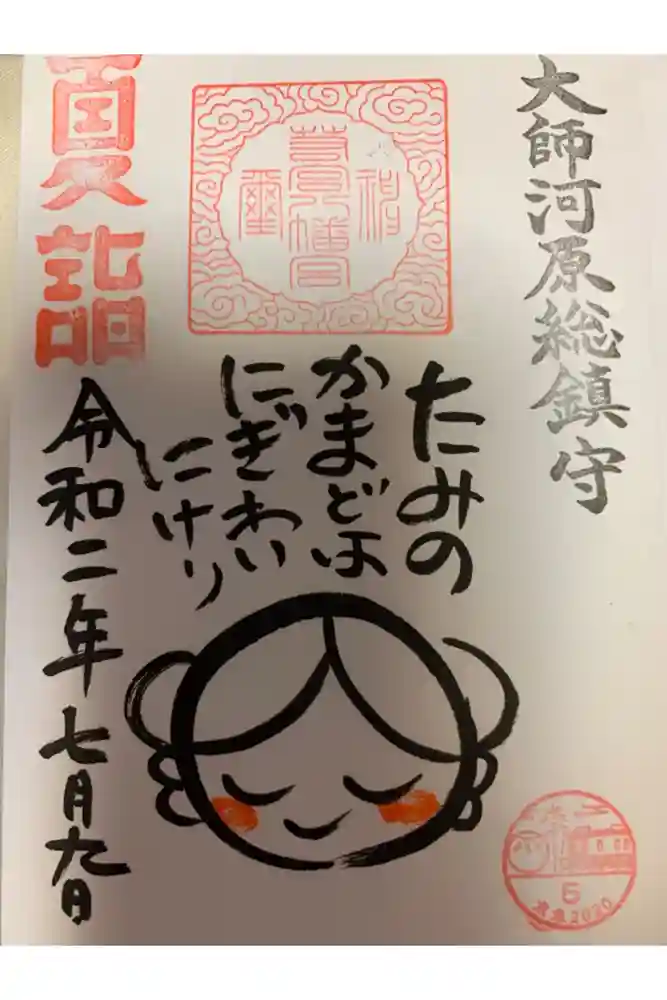 大師河原総鎮守
たみの
かまどは
にぎわい
にけり
夏詣
令和二年七月九日
5
京急2020